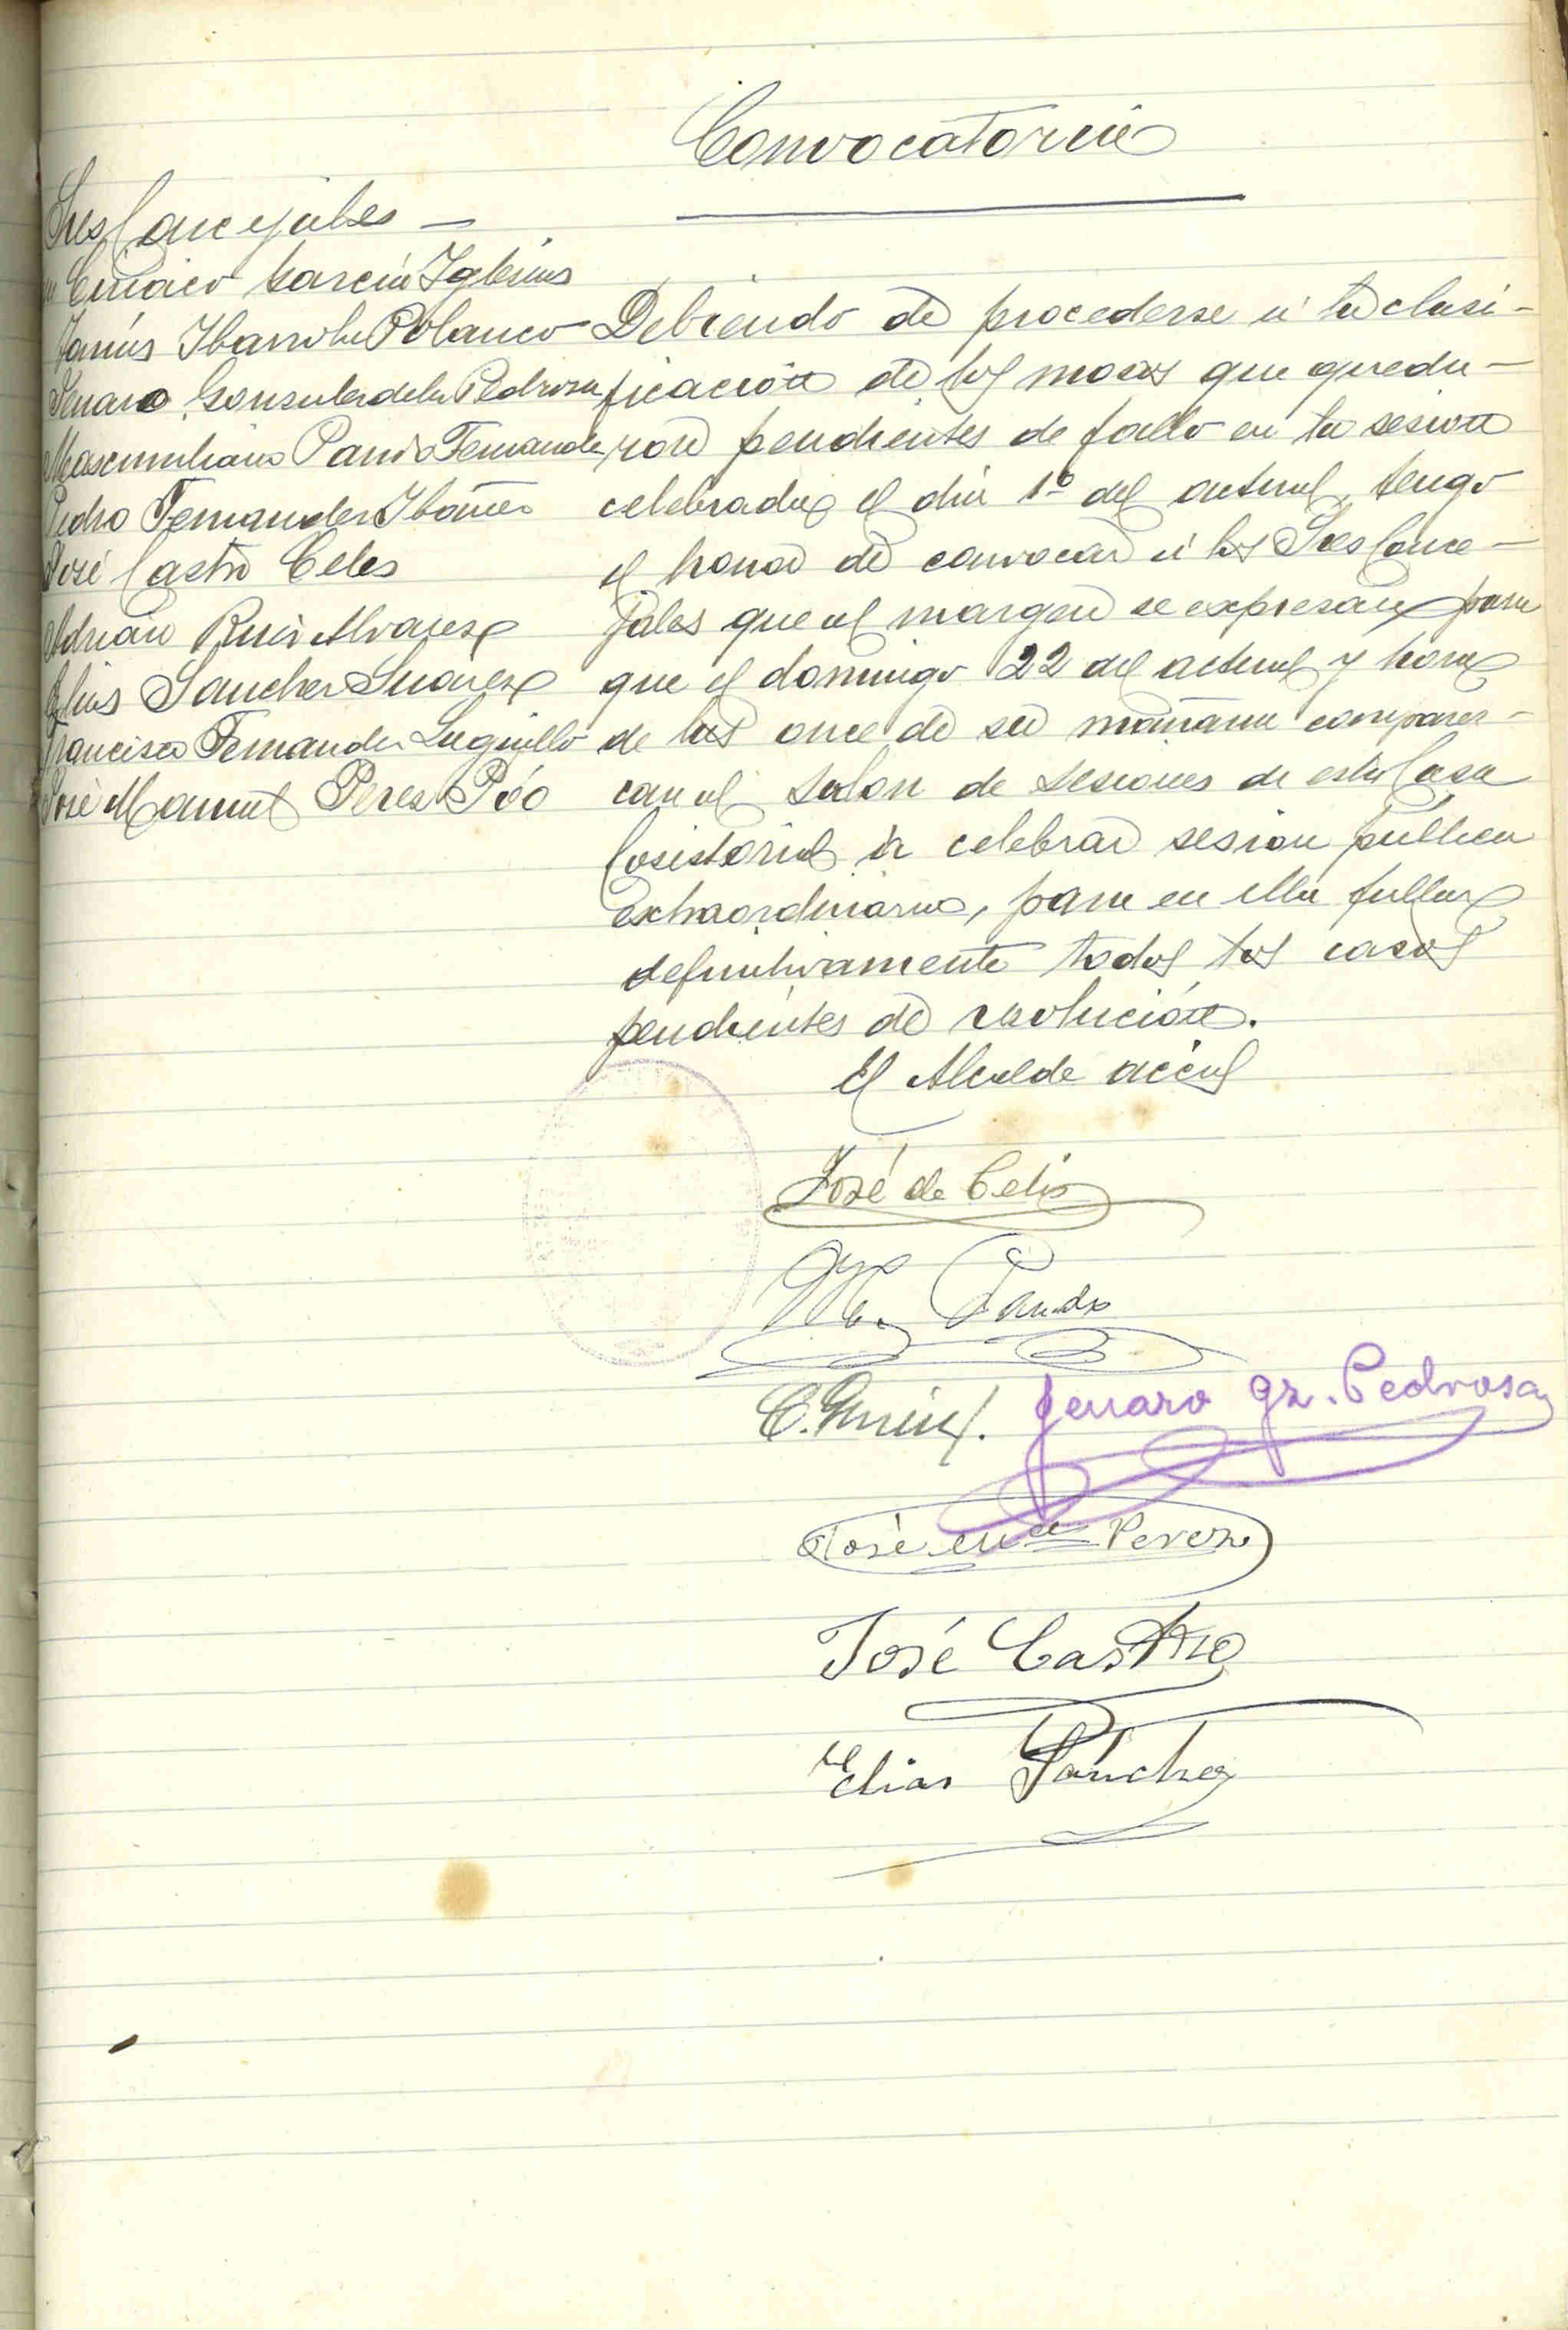 Convocatoria
Sres Concejales —
Ciriaco García Iglesias
Tomás Ibarrola Polanco
Genaro Gonzalez de la Pedrosa
Maximiliano Pando Fernandez
Pedro Fernandez Ibañez
José Castro Celes
Adrian Ruiz Alvarez
Elias Sanchez Suárez
Francisco Fernandez Luguillo
José Manuel Perez Póo
Debiendo de procederse á la clasi-
ficación de los mozos que queda-
ron pendientes de fallo en la sesion
celebrada el dia 1º del actual, tengo
el honor de convocar á los Sres Conce-
jales que al margen se expresan para
que el domingo 22 del actual y hora
de las once de su mañana comparez-
can al salon de sesiones de esta Casa
Cosistorial á celebrar sesion publica
extraordinaria, para en ella fallar
definitivamente todos los casos
pendientes de resolución.
El Alcalde accal
José de Celis
M. Pando
Genaro Gz. Pedrosa
José Perez
José Castro
Elias Sánchez